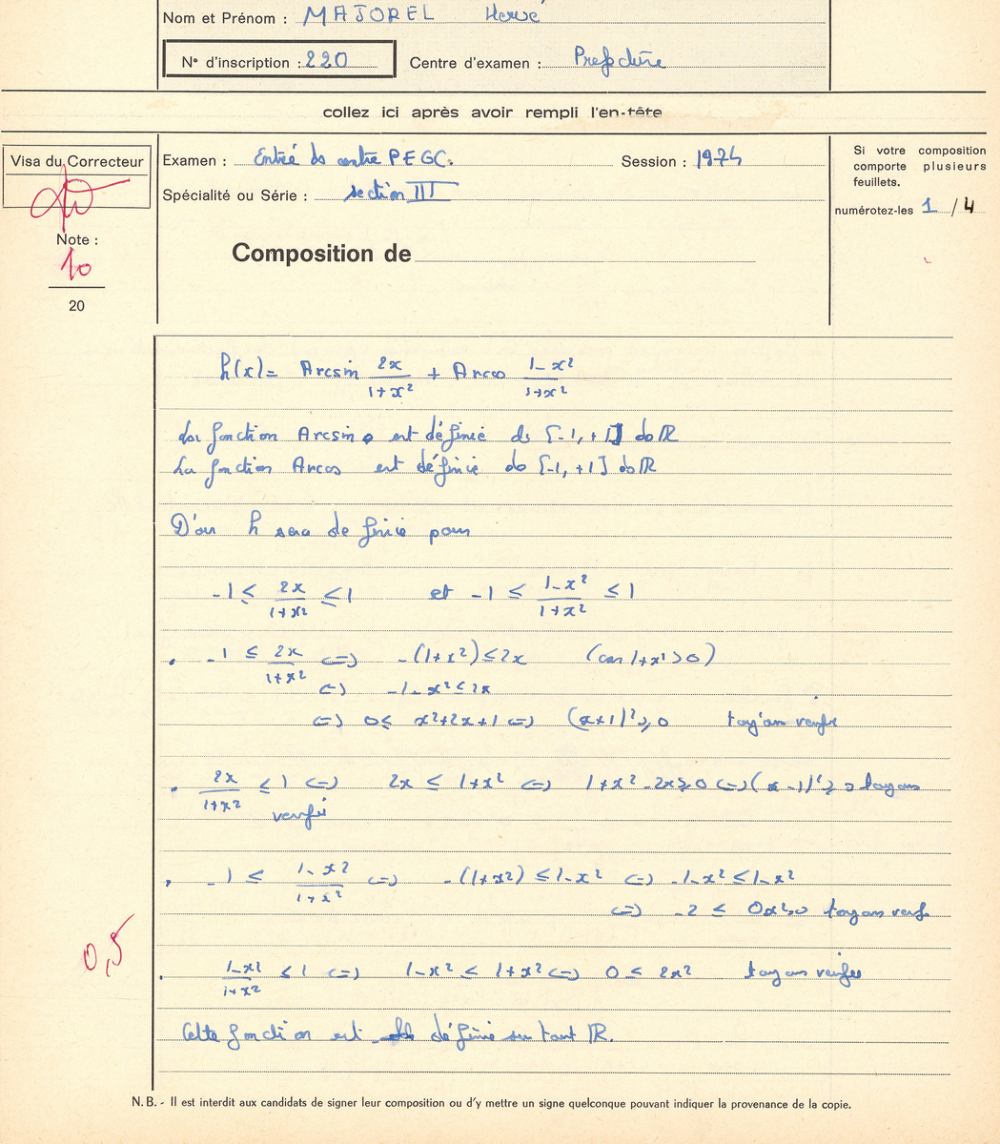 Nom et Prénom : MAJOREL Hervé
N° d'inscription : 220 Centre d'examen : Préfecture
collez ici après avoir rempli l'en-tête
Visa du Correcteur
Examen : Entrée ds centre PEGC. Session : 1974
Spécialité ou Série : section III
Si votre composition
comporte plusieurs
feuillets.
numérotez-les 1 / 4
Note :
10
20
Composition de
h(x) = Arcsin 2x/(1+x²) + Arcos (1-x²)/(1+x²)
La fonction Arcsin est définie ds [-1, +1] ds ℝ
La fonction Arcos est définie ds [-1, +1] ds ℝ
D'où h sera définie pour
-1 ≤ 2x/(1+x²) ≤ 1 et -1 ≤ (1-x²)/(1+x²) ≤ 1
. -1 ≤ 2x/(1+x²) <=> -(1+x²) ≤ 2x (car 1+x² > 0)
<=> -1-x² ≤ 2x
<=> 0 ≤ x²+2x+1 <=> (x+1)² ≥ 0 toujours vérifié
. 2x/(1+x²) ≤ 1 <=> 2x ≤ 1+x² <=> 1+x²-2x ≥ 0 <=> (x-1)² ≥ 0 toujours
vérifié
. -1 ≤ (1-x²)/(1+x²) <=> -(1+x²) ≤ 1-x² <=> -1-x² ≤ 1-x²
<=> -2 ≤ 0 toujours vérif
0,5
. (1-x²)/(1+x²) ≤ 1 <=> 1-x² ≤ 1+x² <=> 0 ≤ 2x² toujours vérifiée
Cette fonction est définie sur tout ℝ.
N. B. - Il est interdit aux candidats de signer leur composition ou d'y mettre un signe quelconque pouvant indiquer la provenance de la copie.